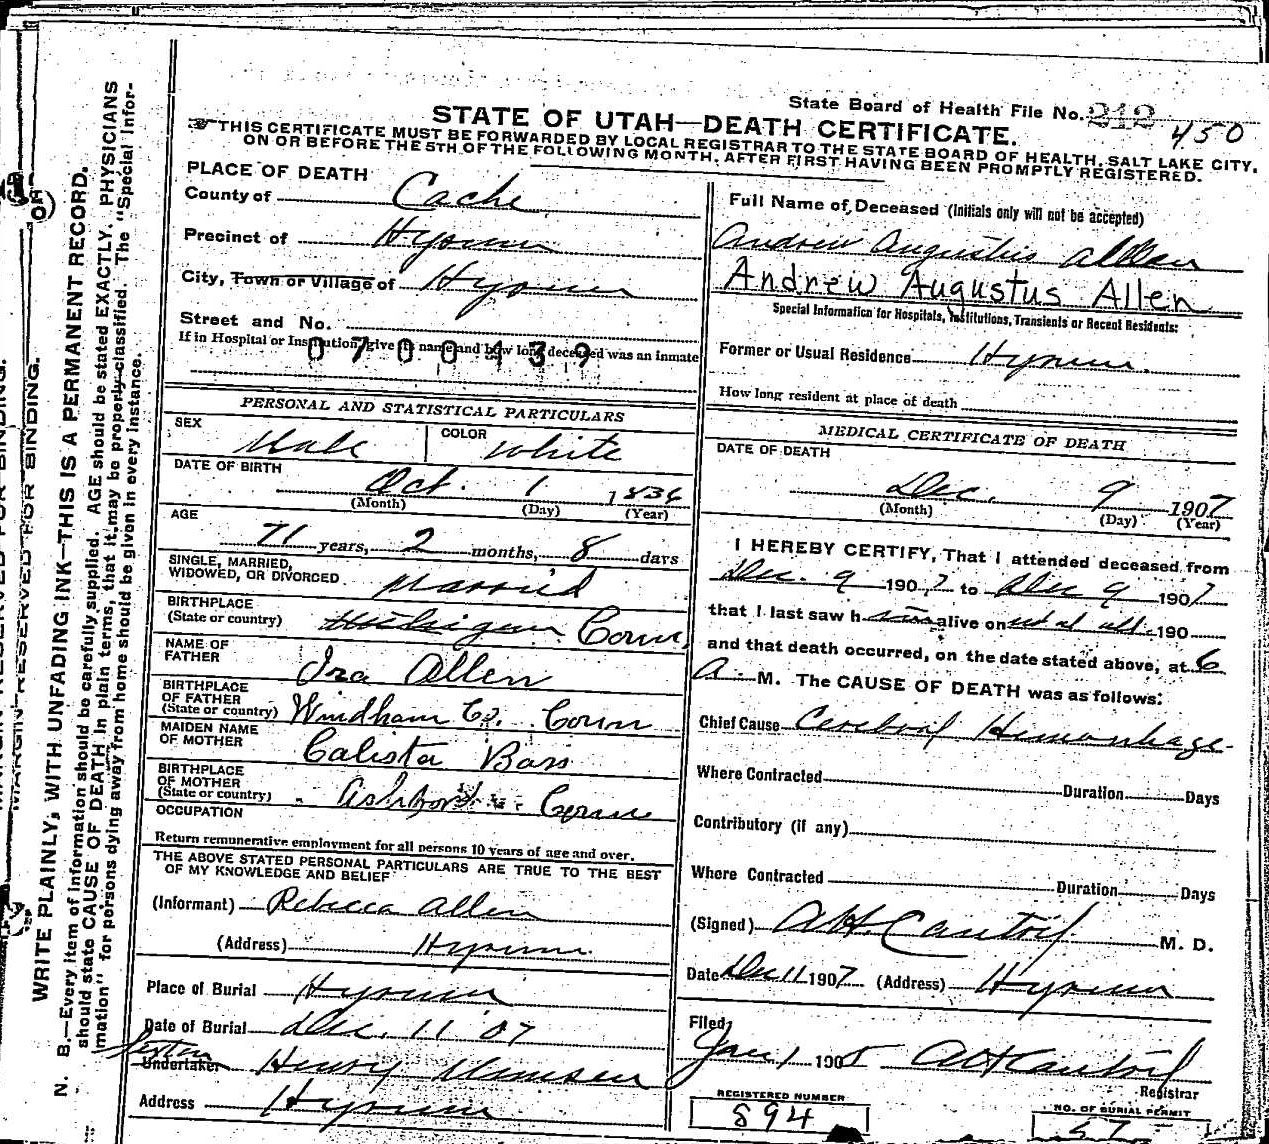 State Board of Health File No. 212 450
STATE OF UTAH—DEATH CERTIFICATE.
THIS CERTIFICATE MUST BE FORWARDED BY LOCAL REGISTRAR TO THE STATE BOARD OF HEALTH, SALT LAKE CITY,
ON OR BEFORE THE 5TH OF THE FOLLOWING MONTH, AFTER FIRST HAVING BEEN PROMPTLY REGISTERED.
PLACE OF DEATH
County of Cache
Precinct of Hyrum
City, Town or Village of Hyrum
Street and No.
If in Hospital or Institution, give its name and how long deceased was an inmate
0700439
PERSONAL AND STATISTICAL PARTICULARS
SEX Male COLOR White
DATE OF BIRTH
Oct. 1 1836
(Month) (Day) (Year)
AGE
71 years, 2 months, 8 days
SINGLE, MARRIED,
WIDOWED, OR DIVORCED Married
BIRTHPLACE
(State or country) Conn,
NAME OF
FATHER Ira Allen
BIRTHPLACE
OF FATHER
(State or country) Windham Co. Conn
MAIDEN NAME
OF MOTHER Calista Bass
BIRTHPLACE
OF MOTHER
(State or country) Conn
OCCUPATION
Return remunerative employment for all persons 10 years of age and over.
THE ABOVE STATED PERSONAL PARTICULARS ARE TRUE TO THE BEST
OF MY KNOWLEDGE AND BELIEF
(Informant) Rebecca Allen
(Address) Hyrum
Place of Burial Hyrum
Date of Burial Dec. 11 07
Sexton
Undertaker Henry
Address Hyrum
Full Name of Deceased (Initials only will not be accepted)
Andrew Augustus Allen
Andrew Augustus Allen
Special Information for Hospitals, Institutions, Transients or Recent Residents:
Former or Usual Residence Hyrum.
How long resident at place of death
MEDICAL CERTIFICATE OF DEATH
DATE OF DEATH
Dec. 9 1907
(Month) (Day) (Year)
I HEREBY CERTIFY, That I attended deceased from
Dec. 9 1907 to Dec 9 1907
that I last saw him alive on not at all 190
and that death occurred, on the date stated above, at 6
A. M. The CAUSE OF DEATH was as follows:
Chief Cause Cerebral Hemorrhage
Where Contracted Duration Days
Contributory (if any)
Where Contracted Duration Days
(Signed) M. D.
Date Dec 11 1907 (Address) Hyrum
Filed,
Jan 1 1908
Registrar
REGISTERED NUMBER
894
NO. OF BURIAL PERMIT
57
MARGIN RESERVED FOR BINDING.
WRITE PLAINLY, WITH UNFADING INK—THIS IS A PERMANENT RECORD.
N. B.—Every item of information should be carefully supplied. AGE should be stated EXACTLY. PHYSICIANS
should state CAUSE OF DEATH in plain terms, that it may be properly classified. The "Special Infor-
mation" for persons dying away from home should be given in every instance.